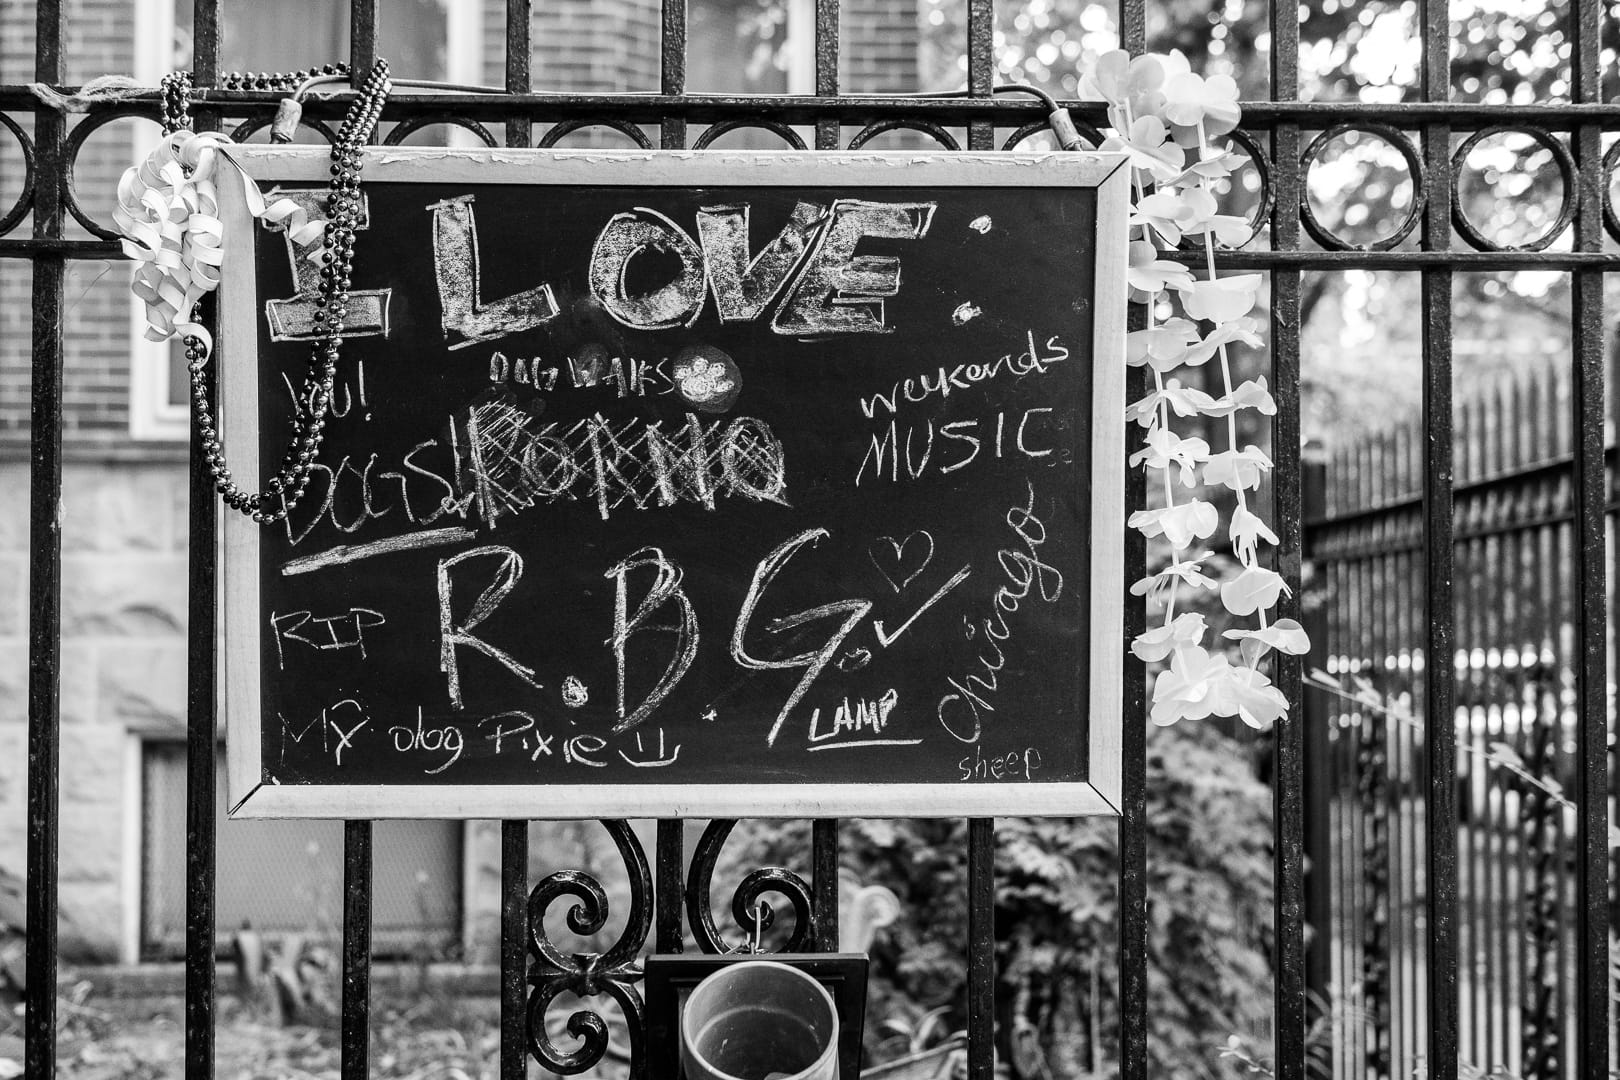 I LOVE :
YOU!
DOG WALKS
weekends
DOGS!
MUSIC
RIP
R.B.G
Chicago
My dog Pixie
LAMP
sheep